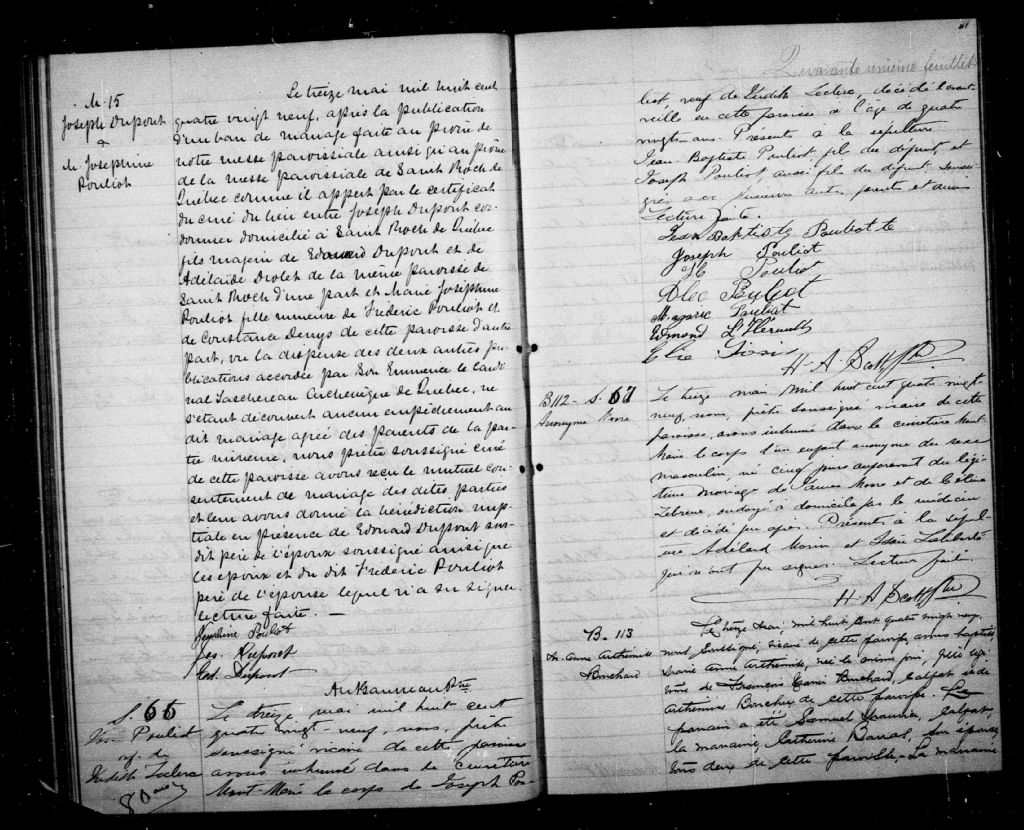 M. 15
Joseph Dupont
&
M. Josephine
Pouliot
Le treize mai mil huit cent
quatre vingt neuf, après la publication
d'un ban de mariage faite au prône de
notre messe paroissiale ainsi qu'au prône
de la messe paroissiale de Saint Roch de
Québec comme il appert par le certificat
du curé du lieu entre Joseph Dupont cor-
donnier domicilié à Saint Roch de Québec
fils majeur de Edouard Dupont et de
Adelaide Drolet de la même paroisse de
Saint Roch d'une part et Marie Joséphine
Pouliot fille mineure de Fréderic Pouliot et
de Constance Denys de cette paroisse d'autre
part, vu la dispense des deux autres pu-
blications accordée par Son Eminence le Cardi-
nal Taschereau Archevêque de Québec, ne
s'étant découvert aucun empêchement au
dit mariage agréé des parents de la par-
tie mineure, nous prêtre soussigné curé
de cette paroisse avons reçu le mutuel con-
sentement de mariage des dites parties
et leur avons donné la bénédiction nup-
tiale en présence de Edouard Dupont sus-
dit père de l'époux soussigné ainsi que
les époux et du dit Fréderic Pouliot
père de l'épouse lequel n'a su signer.
lecture faite. —
Josephine Pouliot
Jos. Dupont
Ed. Dupont
Ptre
S. 66
Pouliot
Judith Leclerc
80 ans
Le treize mai mil huit cent
quatre vingt-neuf, nous, prêtre
soussigné vicaire de cette paroisse
avons inhumé dans le cimetière
Mont-Marie le corps de Joseph Pou-
Quarante unième feuillet
liot, veuf de Judith Leclerc, décédé l'avant
veille en cette paroisse à l'âge de quatre
vingts ans. Présents à la sépulture
Jean Baptiste Pouliot fils du défunt et
Joseph Pouliot aussi fils du défunt soussi-
gnés avec plusieurs autres parents et amis
Lecture faite.
Jean Baptiste Pouliot
Joseph Pouliot
Pouliot
Alec Pouliot
Pouliot
Edmond L'Hérault
Elie
H. A. Scott Ptre
B 112 - S. 67
Anonyme
Le treize mai mil huit cent quatre vingt
neuf, nous, prêtre soussigné vicaire de cette
paroisse, avons inhumé dans le cimetière Mont-
Marie le corps d'un enfant anonyme du sexe
masculin, né cinq jours auparavant du légi-
time mariage de James et de Célina
ondoyé à domicile par le médecin
et décédé peu après. Présents à la sépul-
ture Adélard Morin et Laliberté
qui n'ont pu signer. Lecture faite.
H. A Scott Ptre
B. 113
M. Anne Arthemise
Bouchard
Le treize mai mil huit cent quatre vingt neuf
nous, soussigné, vicaire de cette paroisse, avons baptisé
Marie Anne Arthemise, née le même jour, fille légi-
time de François Xavier Bouchard, calfat, et de
Arthémise Boucher de cette paroisse. Le
parrain a été Samuel calfat,
la marraine, Catherine son épouse,
tous deux de cette paroisse. La marraine